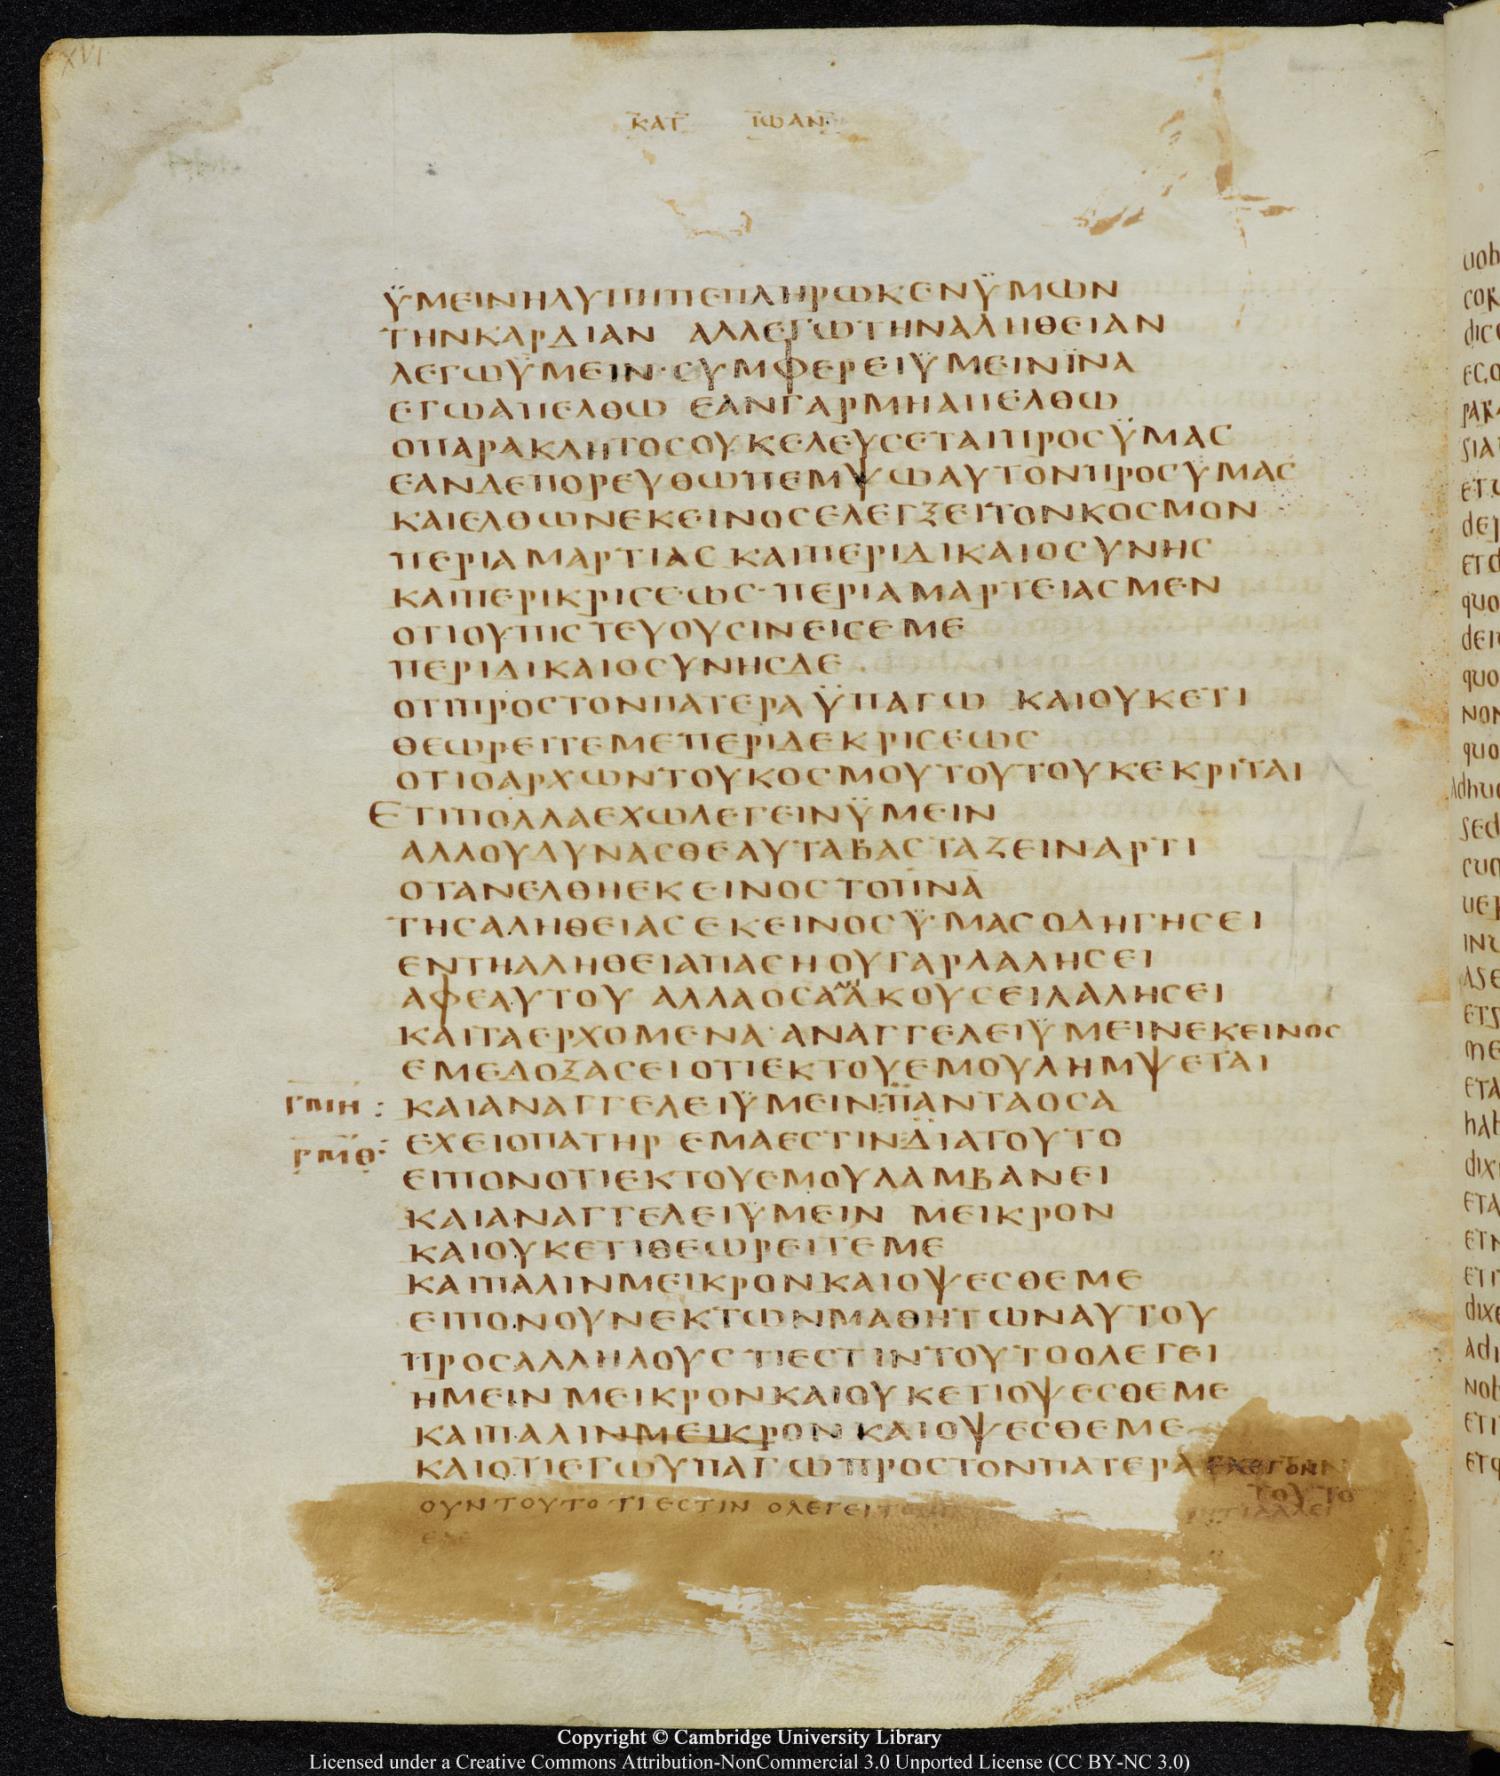 XVI
ΚΑΤ ΙΩΑΝ
ΫΜΕΙΝΗΛΥΠΗΠΕΠΛΗΡΩΚΕΝΫΜΩΝ
ΤΗΝΚΑΡΔΙΑΝ ΑΛΛΕΓΩΤΗΝΑΛΗΘΕΙΑΝ
ΛΕΓΩΫΜΕΙΝ·ΣΥΜΦΕΡΕΙΫΜΕΙΝΪΝΑ
ΕΓΩΑΠΕΛΘΩ ΕΑΝΓΑΡΜΗΑΠΕΛΘΩ
ΟΠΑΡΑΚΛΗΤΟΣΟΥΚΕΛΕΥΣΕΤΑΙΠΡΟΣΫΜΑΣ
ΕΑΝΔΕΠΟΡΕΥΘΩΠΕΜΨΩΑΥΤΟΝΠΡΟΣΥΜΑΣ
ΚΑΙΕΛΘΩΝΕΚΕΙΝΟΣΕΛΕΓΞΕΙΤΟΝΚΟΣΜΟΝ
ΠΕΡΙΑΜΑΡΤΙΑΣ ΚΑΙΠΕΡΙΔΙΚΑΙΟΣΥΝΗΣ
ΚΑΙΠΕΡΙΚΡΙΣΕΩΣ·ΠΕΡΙΑΜΑΡΤΕΙΑΣΜΕΝ
ΟΤΙΟΥΠΙΣΤΕΥΟΥΣΙΝΕΙΣΕΜΕ
ΠΕΡΙΔΙΚΑΙΟΣΥΝΗΣΔΕ
ΟΤΙΠΡΟΣΤΟΝΠΑΤΕΡΑΫΠΑΓΩ ΚΑΙΟΥΚΕΤΙ
ΘΕΩΡΕΙΤΕΜΕΠΕΡΙΔΕΚΡΙΣΕΩΣ
ΟΤΙΟΑΡΧΩΝΤΟΥΚΟΣΜΟΥΤΟΥΤΟΥΚΕΚΡΙΤΑΙ
ΕΤΙΠΟΛΛΑΕΧΩΛΕΓΕΙΝΫΜΕΙΝ
ΑΛΛΟΥΔΥΝΑΣΘΕΑΥΤΑΒΑΣΤΑΖΕΙΝΑΡΤΙ
ΟΤΑΝΕΛΘΗΕΚΕΙΝΟΣΤΟΠΝΑ
ΤΗΣΑΛΗΘΕΙΑΣΕΚΕΙΝΟΣΫΜΑΣΟΔΗΓΗΣΕΙ
ΕΝΤΗΑΛΗΘΕΙΑΠΑΣΗΟΥΓΑΡΛΑΛΗΣΕΙ
ΑΦΕΑΥΤΟΥ ΑΛΛΑΟΣΑΑΚΟΥΣΕΙΛΑΛΗΣΕΙ
ΚΑΙΤΑΕΡΧΟΜΕΝΑ·ΑΝΑΓΓΕΛΕΙΫΜΕΙΝΕΚΕΙΝΟΣ
ΕΜΕΔΟΞΑΣΕΙΟΤΙΕΚΤΟΥΕΜΟΥΛΗΜΨΕΤΑΙ
ΡΜΗ: ΚΑΙΑΝΑΓΓΕΛΕΙΫΜΕΙΝ:ΠΑΝΤΑΟΣΑ
ΡΜΘ: ΕΧΕΙΟΠΑΤΗΡ ΕΜΑΕΣΤΙΝ:ΔΙΑΤΟΥΤΟ
ΕΙΠΟΝΟΤΙΕΚΤΟΥΕΜΟΥΛΑΜΒΑΝΕΙ
ΚΑΙΑΝΑΓΓΕΛΕΙΫΜΕΙΝ ΜΕΙΚΡΟΝ
ΚΑΙΟΥΚΕΤΙΘΕΩΡΕΙΤΕΜΕ
ΚΑΙΠΑΛΙΝΜΕΙΚΡΟΝΚΑΙΟΨΕΣΘΕΜΕ
ΕΙΠΟΝΟΥΝΕΚΤΩΝΜΑΘΗΤΩΝΑΥΤΟΥ
ΠΡΟΣΑΛΛΗΛΟΥΣΤΙΕΣΤΙΝΤΟΥΤΟΟΛΕΓΕΙ
ΗΜΕΙΝΜΕΙΚΡΟΝΚΑΙΟΥΚΕΤΙΟΨΕΣΘΕΜΕ
ΚΑΙΠΑΛΙΝΜΕΙΚΡΟΝΚΑΙΟΨΕΣΘΕΜΕ
ΚΑΙΟΤΙΕΓΩΥΠΑΓΩΠΡΟΣΤΟΝΠΑΤΕΡΑ
ΤΟΥΤΟ
ΟΥΝΤΟΥΤΟΤΙΕΣΤΙΝ ΟΛΕΓΕΙ
Copyright © Cambridge University Library
Licensed under a Creative Commons Attribution-NonCommercial 3.0 Unported License (CC BY-NC 3.0)